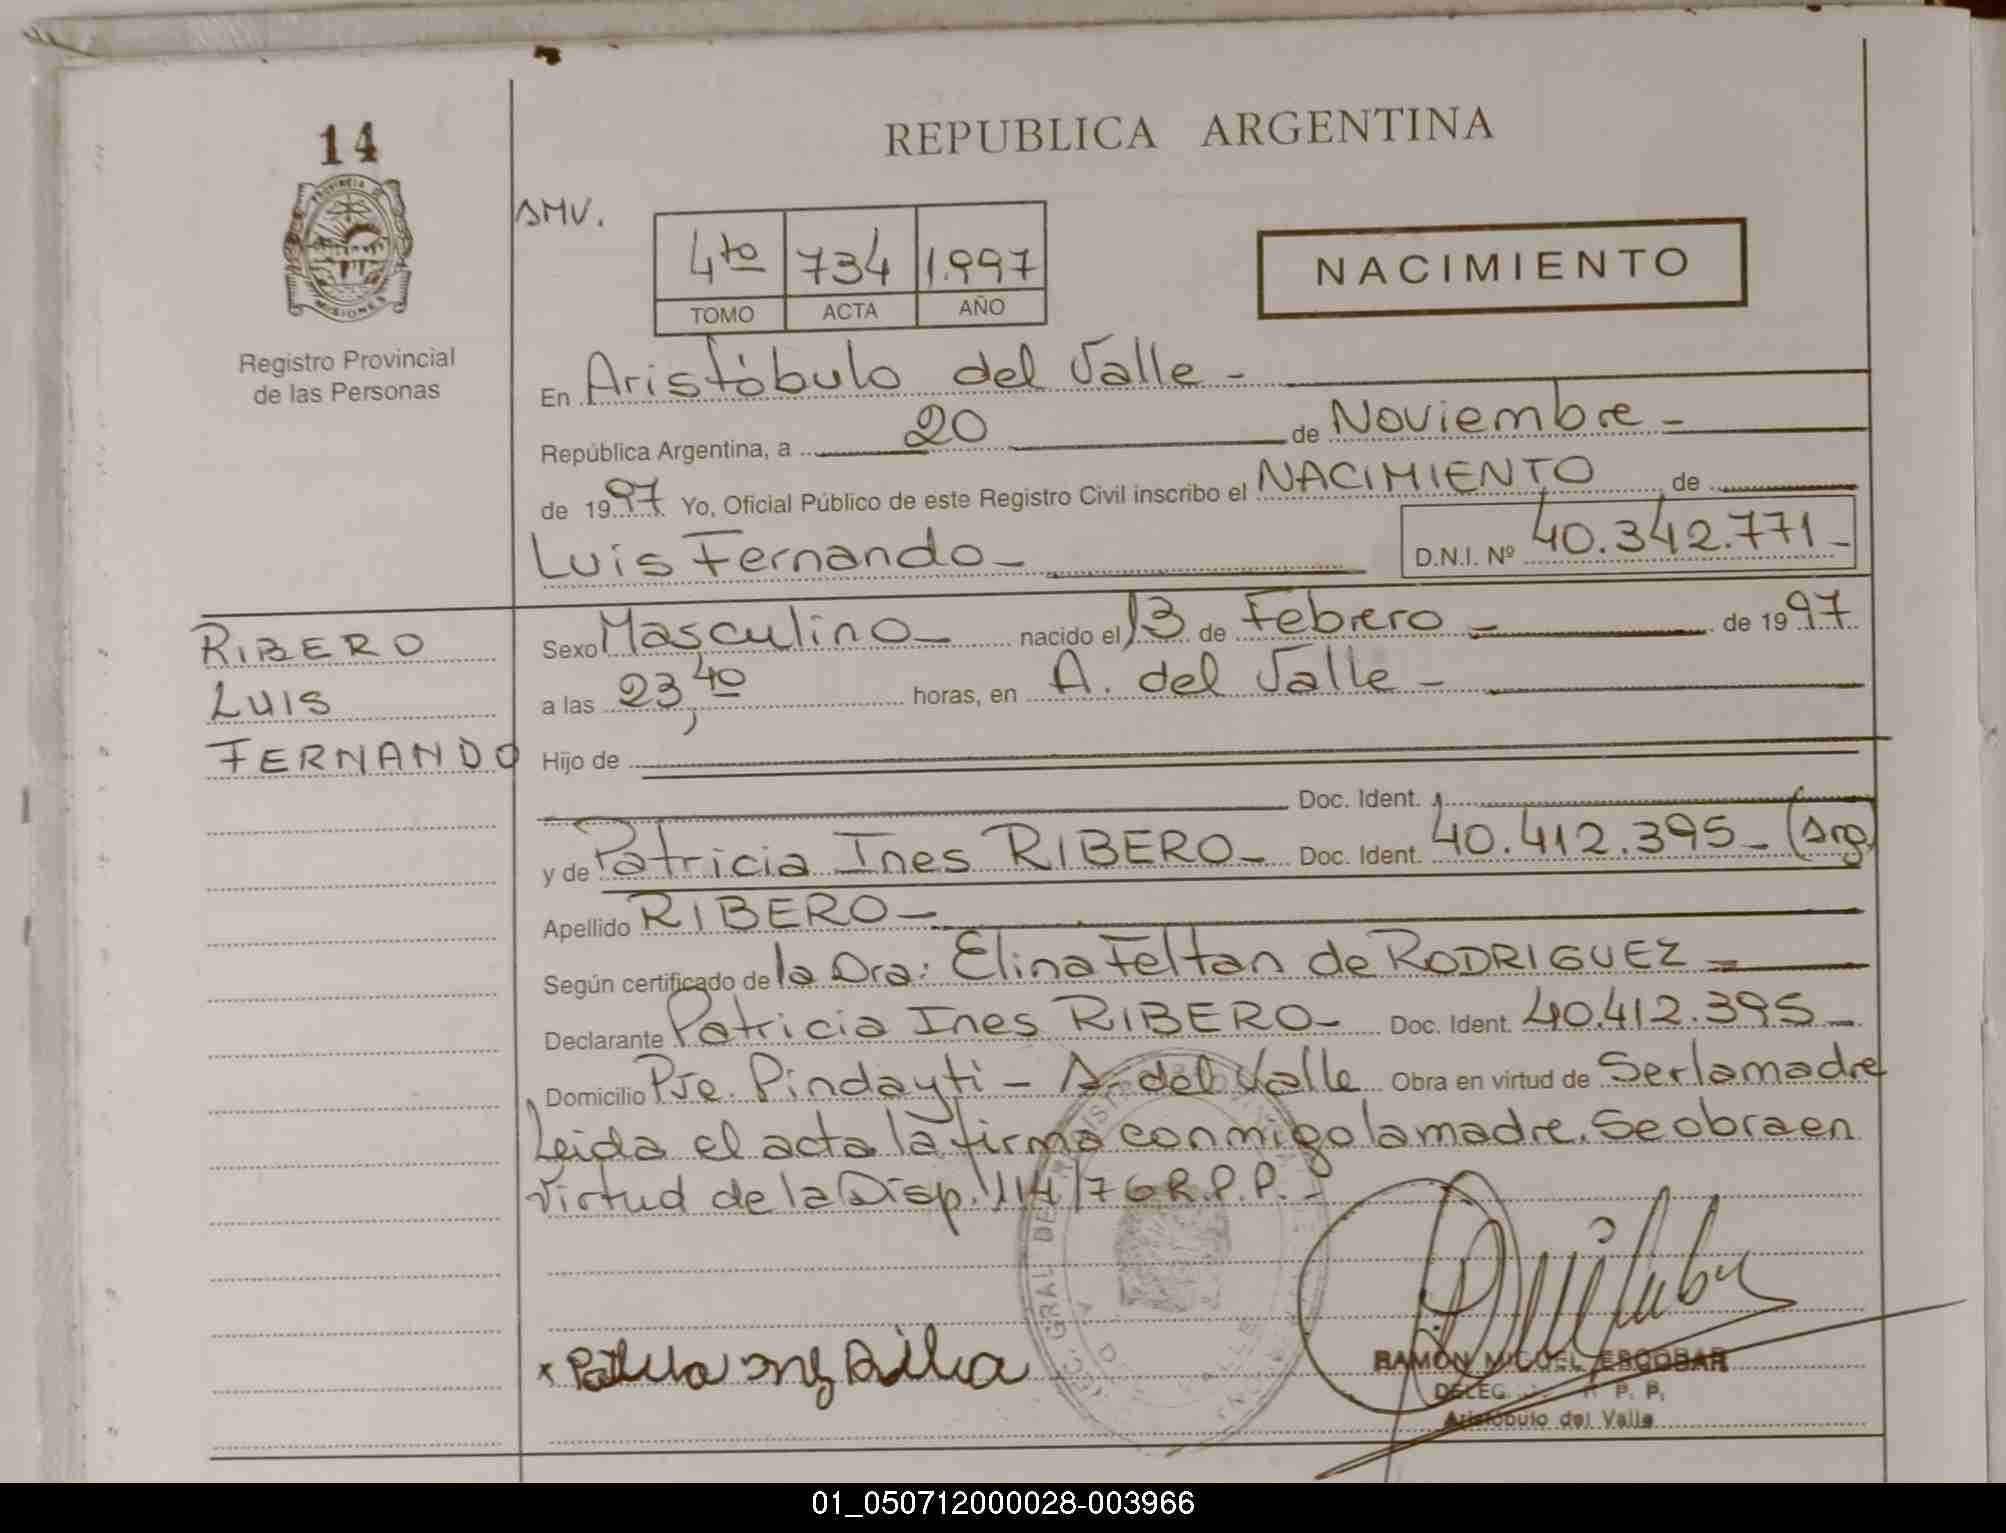 14
PROVINCIA DE
MISIONES
Registro Provincial
de las Personas
REPUBLICA ARGENTINA
SMV.
4to 734 1.997
TOMO ACTA AÑO
NACIMIENTO
En Aristóbulo del Valle -
República Argentina, a 20 de Noviembre -
de 1997 Yo, Oficial Público de este Registro Civil inscribo el NACIMIENTO de
Luis Fernando - D.N.I. Nº 40.342.771 -
RIBERO
LUIS
FERNANDO
Sexo Masculino - nacido el 13 de Febrero - de 1997
a las 23,40 horas, en A. del Valle -
Hijo de
Doc. Ident.
y de Patricia Ines RIBERO - Doc. Ident. 40.412.395 - (Arg)
Apellido RIBERO -
Según certificado de la Dra: Elina Feltan de RODRIGUEZ -
Declarante Patricia Ines RIBERO - Doc. Ident. 40.412.395 -
Domicilio Pje. Pindayti - A. del Valle Obra en virtud de Ser la madre
Leida el acta la firma conmigo la madre. Se obra en
virtud de la Disp. 114/76 R.P.P. -
RAMON MIGUEL ESCOBAR
DELEG. R. P. P.
Aristóbulo del Valle
01_050712000028-003966